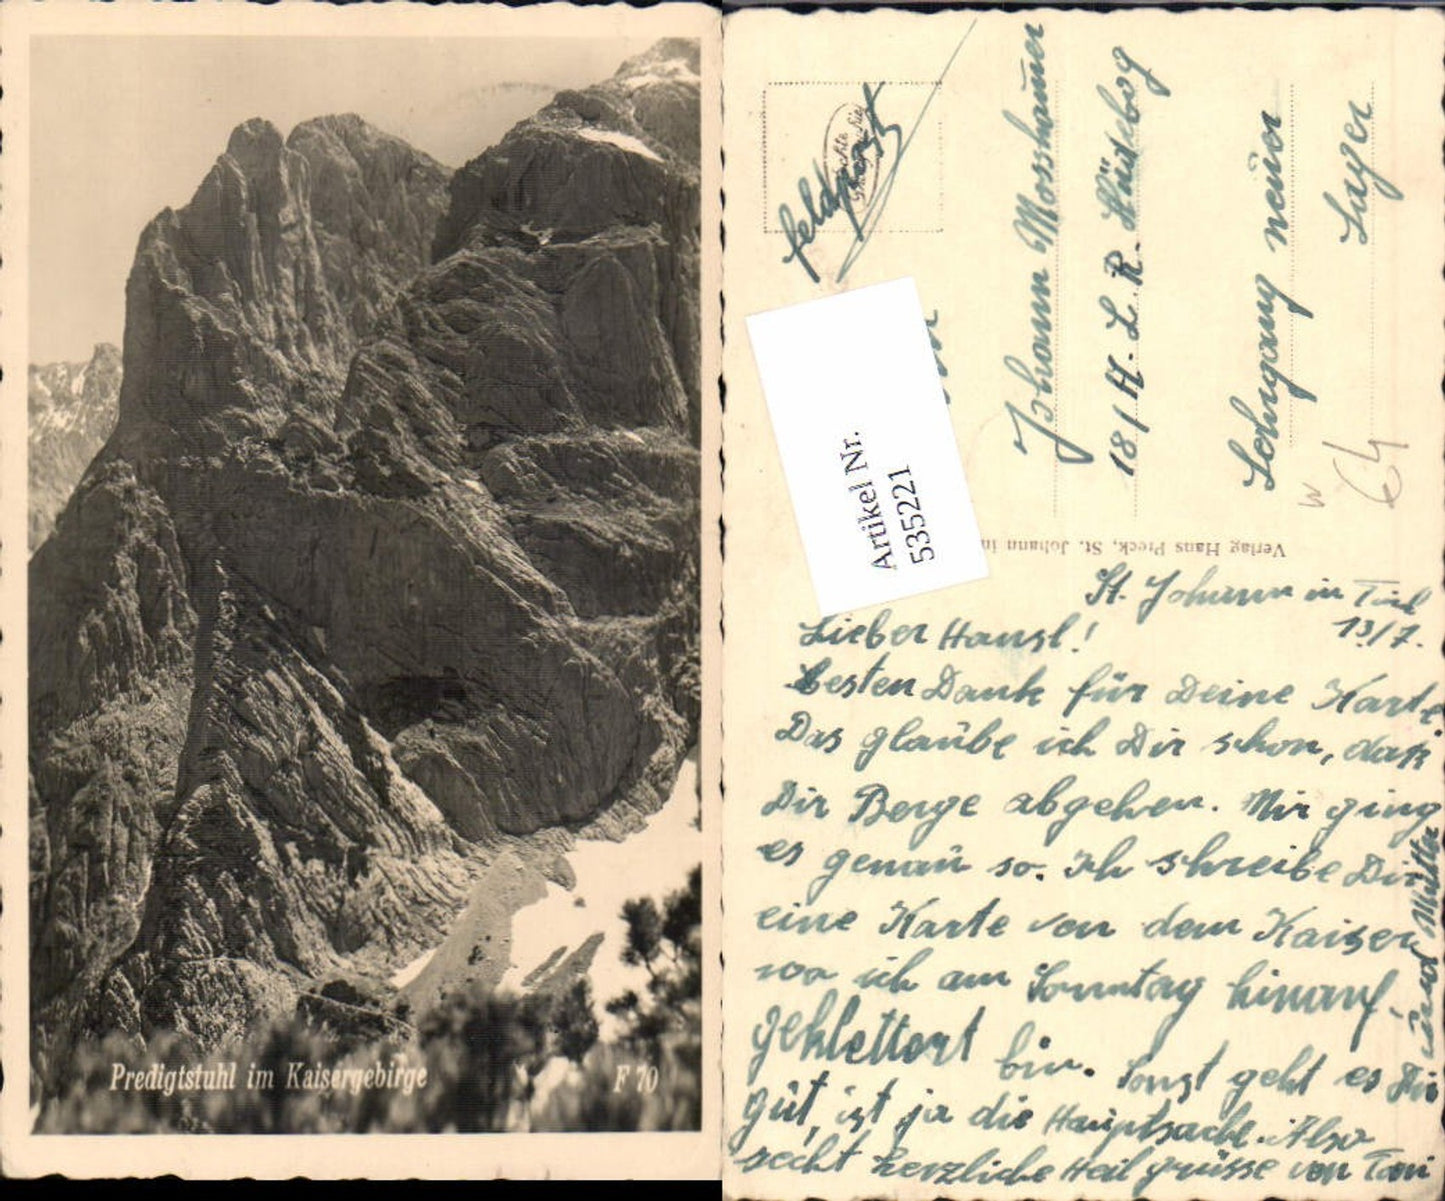 Predigtstuhl im Kaisergebirge
F 70
Feldpost
Johann Mosshamer
18 / H. L. R. Jüterbog
Lehrgang neuer
Lager
W
64
Artikel Nr.
535221
Verlag Hans Preck, St. Johann in
St. Johann in Tirol
13/7.
Lieber Hansl!
Besten Dank für Deine Karte.
Das glaube ich Dir schon, daß
Dir Berge abgehen. Mir ging
es genau so. Ich schreibe Dir
eine Karte von dem Kaiser
wo ich am Sonntag hinauf-
geklettert bin. Sonst geht es Dir
gut, ist ja die Hauptsache. Also
recht herzliche Heil grüsse von Toni
und Mutter